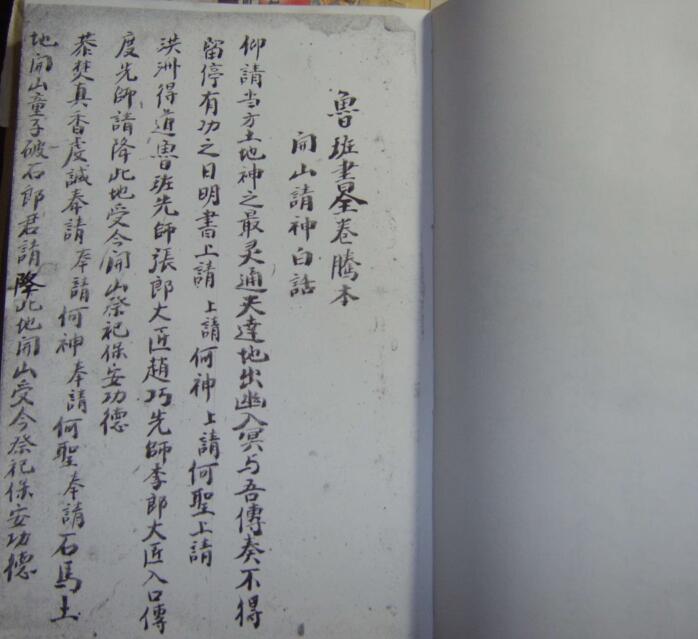 魯班書全卷騰本
開山請神白話
仰請当方土地神之最灵通天達地出幽入冥与吾傳奏不得
留停有功之日明書上請上請何神上請何聖上請
洪洲得道魯班先師張郎大匠趙巧先師李郎大匠入口傳
度先師請降此地受今開山祭祀保安功德
恭焚真香虔誠奉請奉請何神奉請何聖奉請石馬土
地開山童子破石郎君請降此地開山受今祭祀保安功德